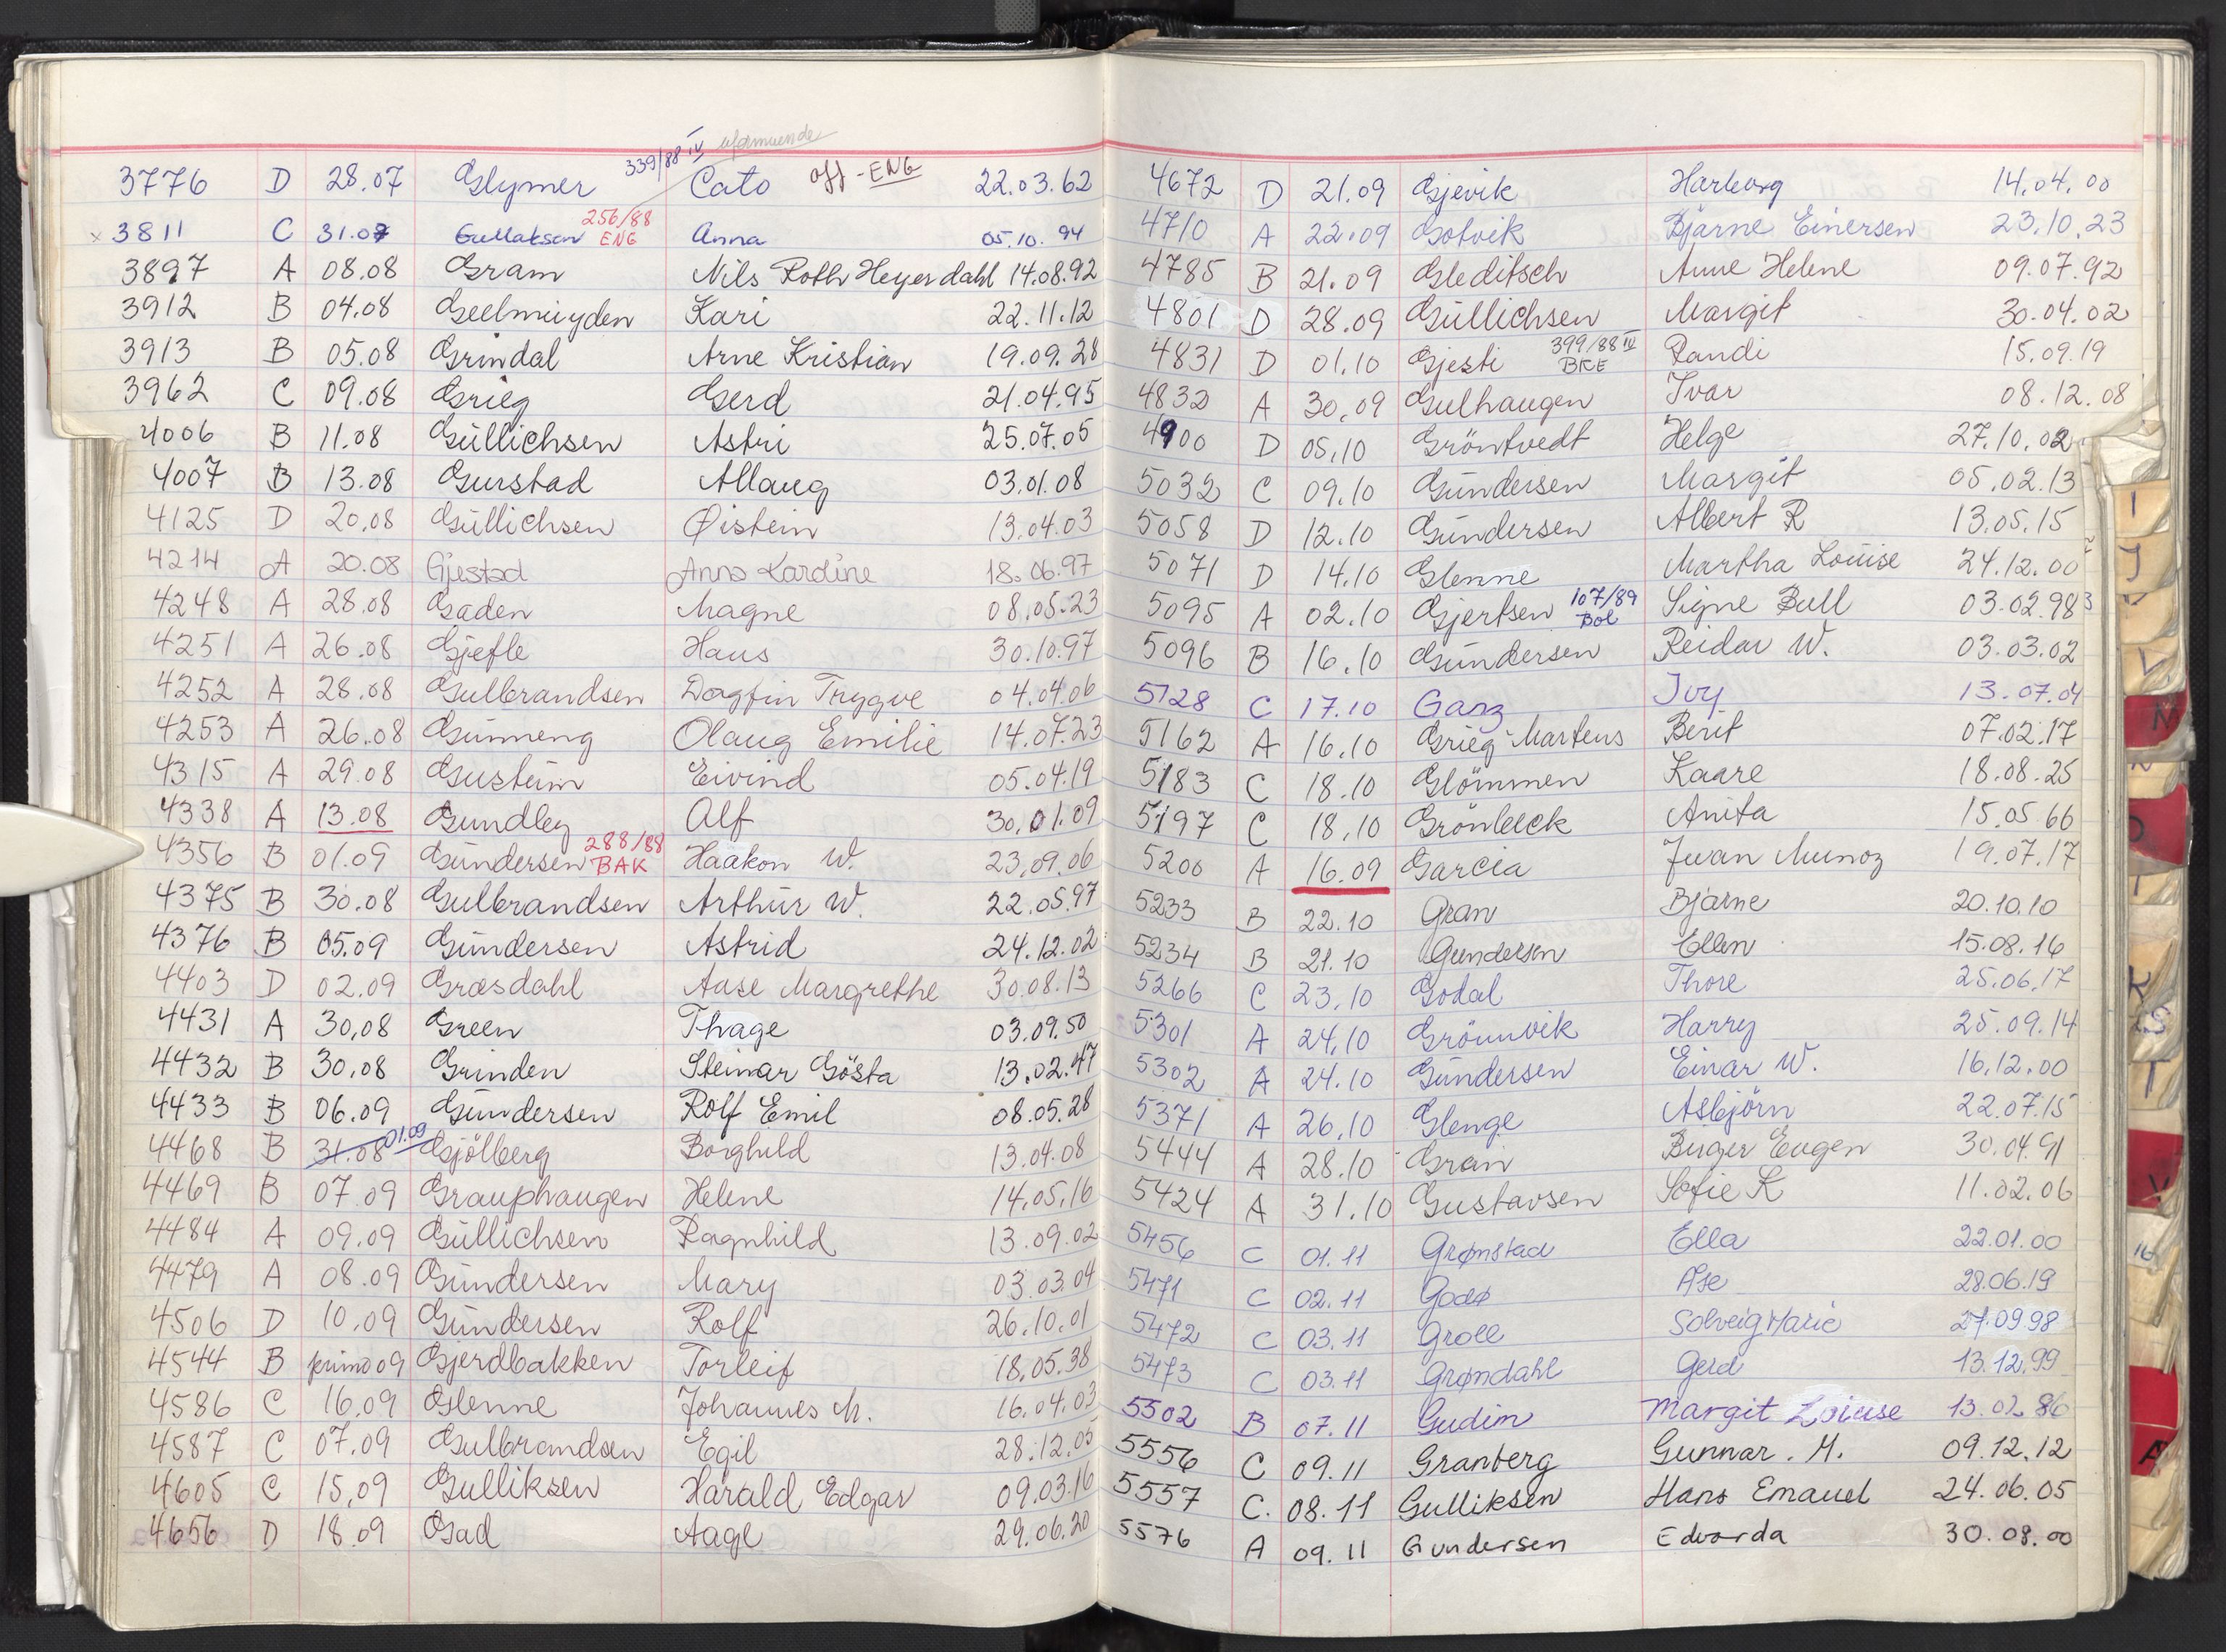 339/88 IV
3776 D 28.07 Glymer Cato off - ENG 22.03.62
256/88
x 3811 C 31.07 Gullaksen ENG Anna 05.10.94
3897 A 08.08 Gram Nils Roth Heyerdahl 14.08.92
3912 B 04.08 Geelmuyden Kari 22.11.12
3913 B 05.08 Grindal Arne Kristian 19.09.28
3962 C 09.08 Grieg Gerd 21.04.95
4006 B 11.08 Gullichsen Astri 25.07.05
4007 B 13.08 Gurstad Allaug 03.01.08
4125 D 20.08 Gullichsen Øistein 13.04.03
4214 A 20.08 Gjestad Anna Kardine 18.06.97
4248 A 28.08 Gaden Magne 08.05.23
4251 A 26.08 Gjefle Hans 30.10.97
4252 A 28.08 Gulbrandsen Dagfin Trygve 04.04.06
4253 A 26.08 Gunneng Olaug Emilie 14.07.23
4315 A 29.08 Eivind 05.04.19
4338 A 13.08 Gundleg Alf 30.01.09
288/88
4356 B 01.09 Gundersen BAK Haakon W. 23.09.06
4375 B 30.08 Gulbrandsen Arthur W. 22.05.97
4376 B 05.09 Gundersen Astrid 24.12.02
4403 D 02.09 Græsdahl Aase Margrethe 30.08.13
4431 A 30,08 Green Thage 03.09.50
4432 B 30,08 Grinden Steinar Gösta 13.02.47
4433 B 06.09 Gundersen Rolf Emil 08.05.28
4468 B 31.08 01.09 Gjölberg Borghild 13.04.08
4469 B 07.09 Grauphaugen Helene 14.05.16
4484 A 09.09 Gullichsen Ragnhild 13.09.02
4479 A 08.09 Gundersen Mary 03.03.04
4506 D 10.09 Gundersen Rolf 26.10.01
4544 B primo 09 Gjerdbakken Torleif 18.05.38
4586 C 16.09 Glenne Johannes M. 16.04.03
4587 C 07.09 Gulbrandsen Egil 28.12.05
4605 C 15.09 Gulliksen Harald Edgar 09.03.16
4656 D 18.09 Gad Aage 29.06.20
4672 D 21.09 Gjevik Harborg 14.04.00
4710 A 22.09 Gotvik Bjarne Einersen 23.10.23
4785 B 21.09 Gleditsch Anne Helene 09.07.92
4801 D 28.09 Gullichsen Margit 30.04.02
399/88 IV
4831 D 01.10 Gjesti BRE Randi 15.09.19
4832 A 30.09 Gulhaugen Ivar 08.12.08
4900 D 05.10 Gröntvedt Helge 27.10.02
5032 C 09.10 Gundersen Margit 05.02.13
5058 D 12.10 Gundersen Albert R 13.05.15
5071 D 14.10 Glenne Martha Louise 24.12.00
107/89
5095 A 02.10 Gjertsen Bol Signe Bull 03.02.98
5096 B 16.10 Gundersen Reidar W. 03.03.02
5128 C 17.10 Garz Ivy 13.07.04
5162 A 16.10 Grieg-Martens Berit 07.02.17
5183 C 18.10 Glömmen Kaare 18.08.25
5197 C 18.10 Grönbeck Anita 15.05.66
5200 A 16.09 Garcia Juan Munoz 19.07.17
5233 B 22.10 Gran Bjarne 20.10.10
5234 B 21.10 Gundersen Ellen 15.08.16
5266 C 23.10 Godal Thore 25.06.17
5301 A 24.10 Grönnvik Harry 25.09.14
5302 A 24.10 Gundersen Einar W. 16.12.00
5371 A 26.10 Glenge Asbjörn 22.07.15
5444 A 28.10 Gran Birger Eugen 30.04.91
5424 A 31.10 Gustavsen Sofie K 11.02.06
5456 C 01.11 Grønstad Ella 22.01.00
5471 C 02.11 Godø Åse 28.06.19
5472 C 03.11 Groll Solveig Marie 27.09.98
5473 C 03.11 Grøndahl Gerd 13.12.99
5502 B 07.11 Gudim Margit Loiuse 13.02.86
5556 C 09.11 Granberg Gunnar. M. 09.12.12
5557 C. 08.11 Gulliksen Hans Emauel 24.06.05
5576 A 09.11 Gundersen Edvarda 30.08.00